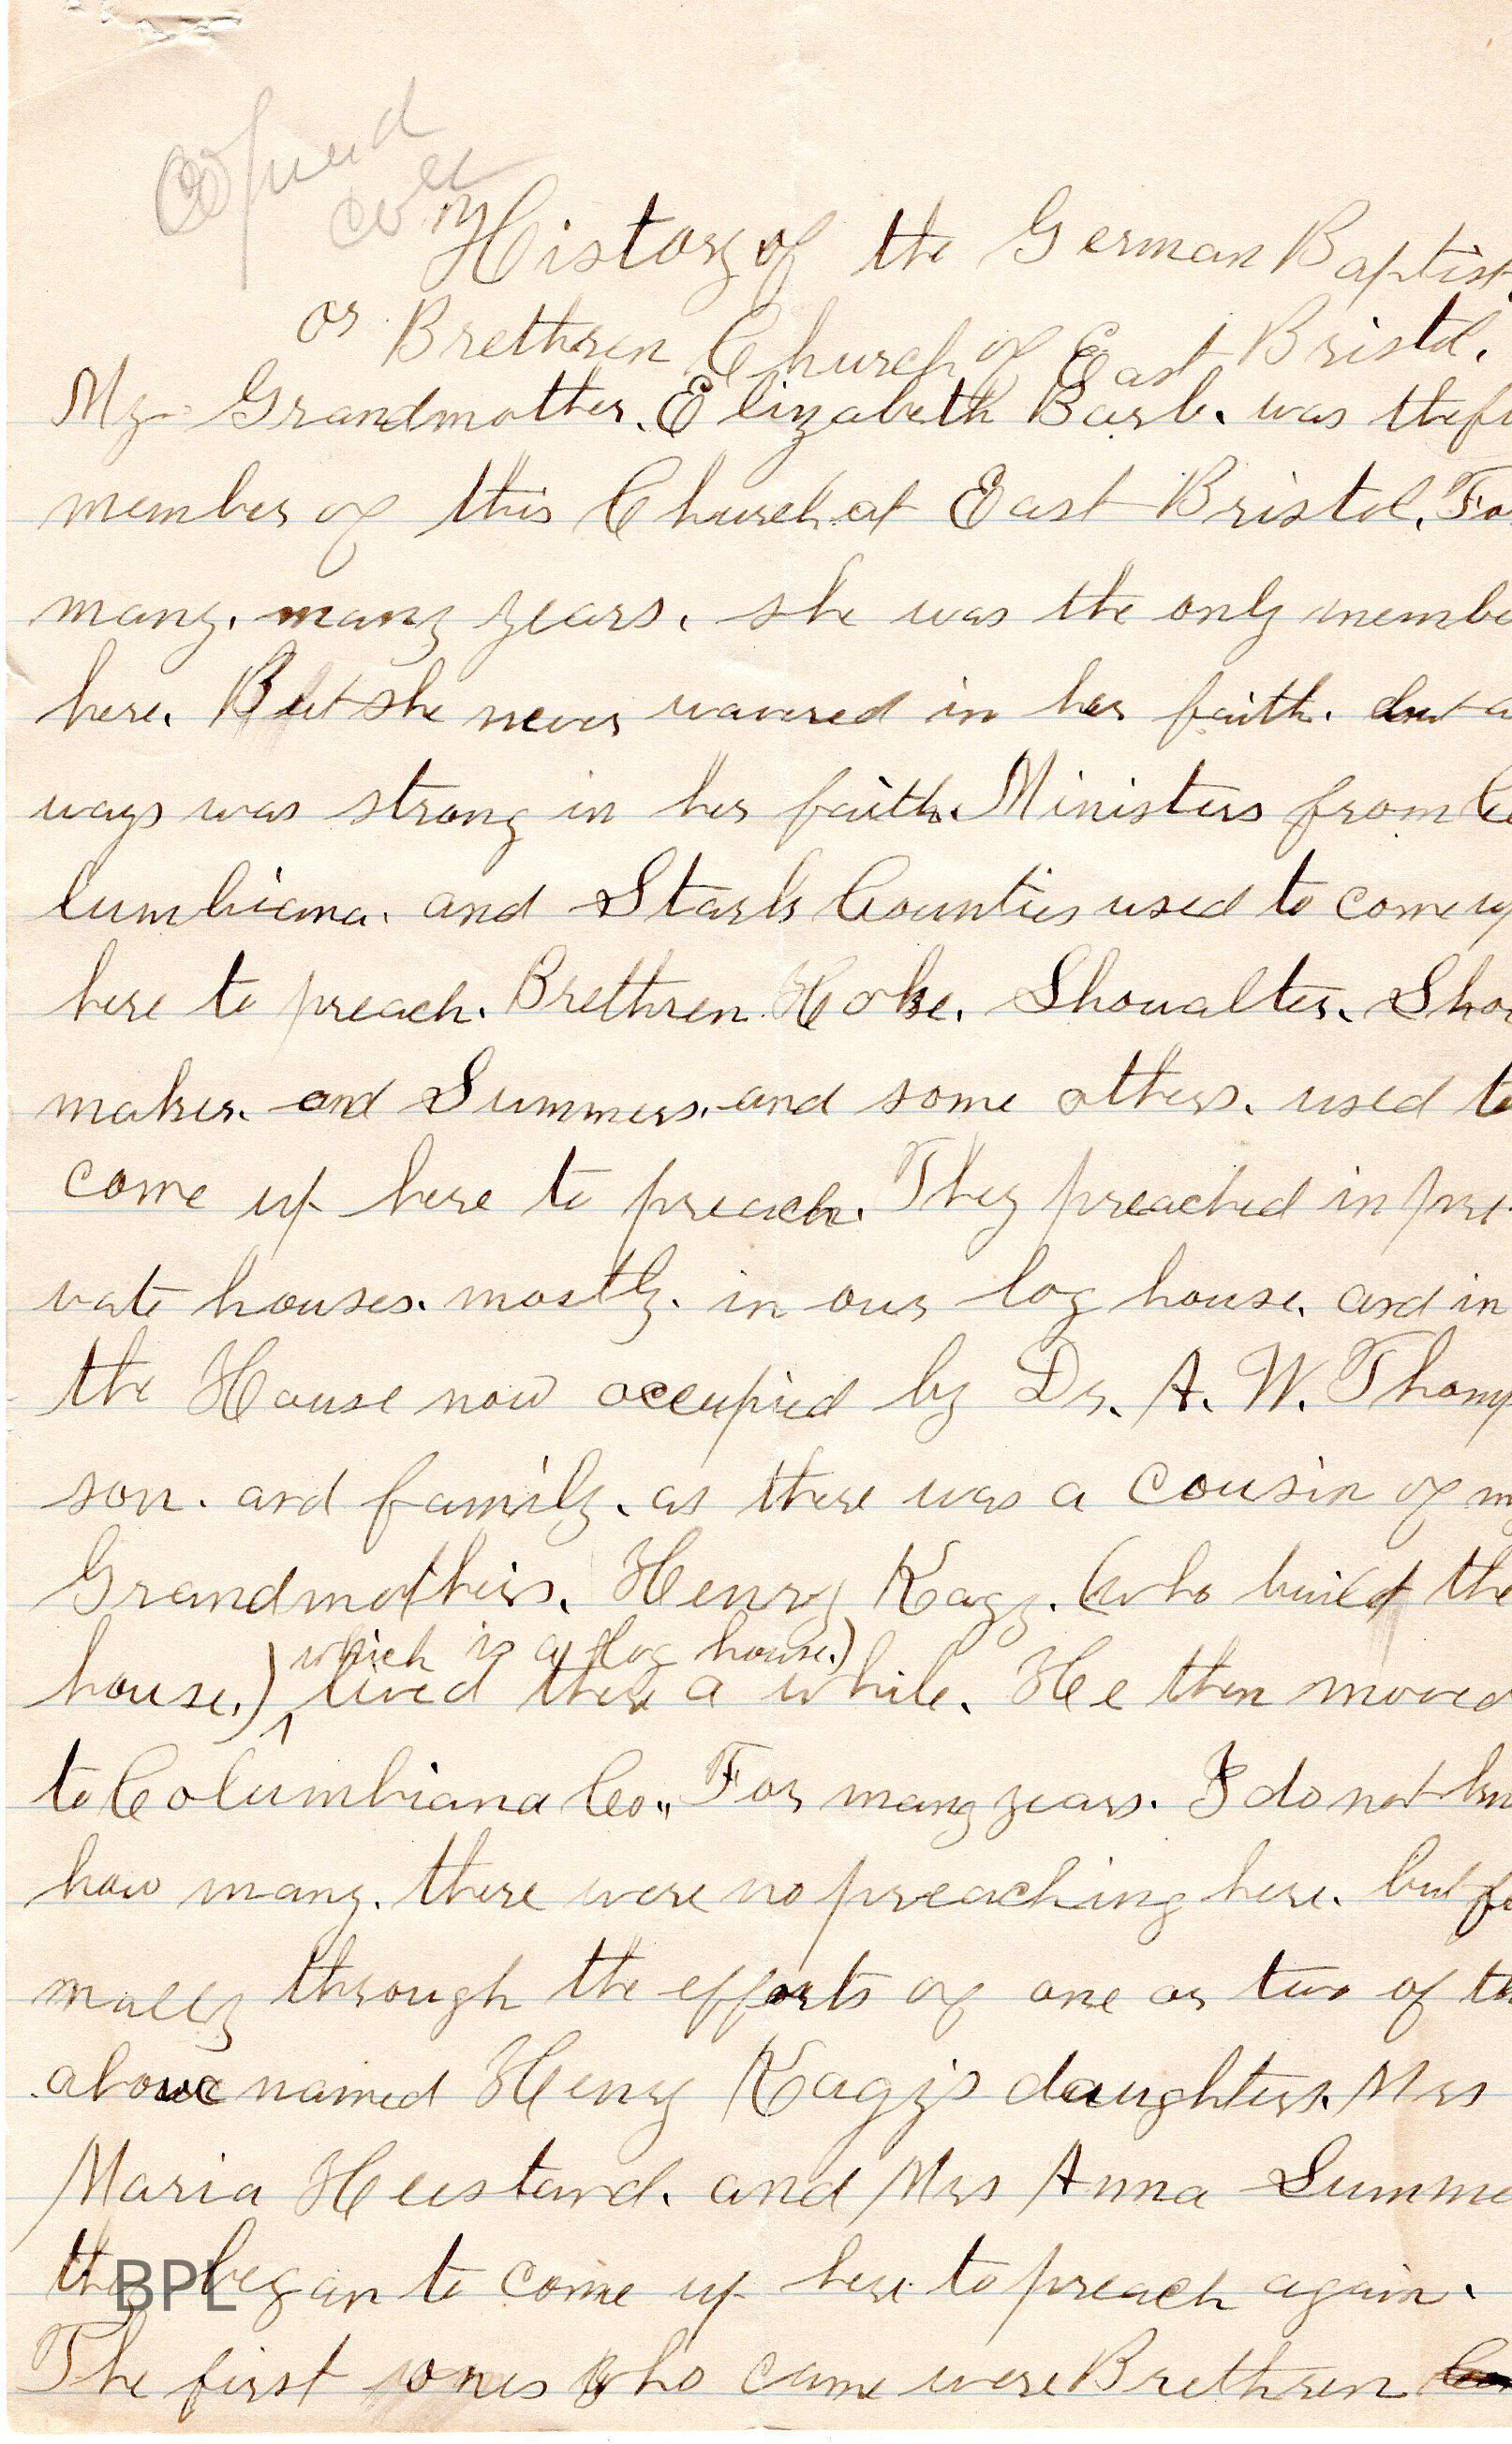 Copied
History of the German Baptist,
or Brethren Church of East Bristol.
My Grandmother. Elizabeth Barb. was the fi
member of this Church at East Bristol. Fo
many. many years. she was the only membe
here. But she never wavered in her faith. but a
ways was strong in her faith. Ministers from Co
lumbiana. and Stark Counties used to come up
here to preach. Brethren. Hoke. Showalter. Sho
maker. and Summers. and some others. used to
come up here to preach. They preached in pri-
vate houses. mostly. in our log house. and in
the House now occupied by Dr. A. W. Thomp
son. and family. as there was a cousin of my
Grandmothers. Henry Kagy. (who build the
which is a log house.)
house.) lived there a while. He then moved
to Columbiana Co., For many years. I do not kn
how many. there were no preaching here. but fi
nally through the efforts of one or two of th
above named Henry Kagy's daughters. Mrs
Maria Heistand. and Mrs Anna Summe
they began to come up here to preach again.
The first ones who came were Brethren
BPL